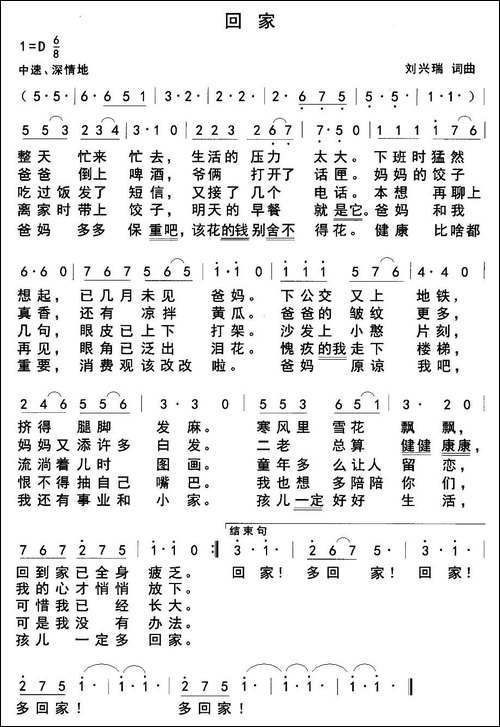 回家
1=D 6/8
中速、深情地
刘兴瑞 词曲
(5·5· | 6·651 | 3·2· | 2·2· | 2·675 | 5·5· | 1·1·) |
553 234 | 3·10 | 222 267 | 7·50 | 111 176 |
整天 忙来 忙去, 生活的 压力 太大。 下班时 猛然
爸爸 倒上 啤酒, 爷俩 打开了 话匣。 妈妈的 饺子
吃过饭 发了 短信, 又接了 几个 电话。 本想 再聊上
离家时 带上 饺子, 明天的 早餐 就是它。 爸妈 和我
爸妈 多多 保重吧, 该花的钱 别舍不 得花。 健康 比啥都
6·60 | 767 565 | 1·10 | 111 111 | 576 | 4·40 |
想起, 已几月 未见 爸妈。 下公交 又上 地铁,
真香, 还有 凉拌 黄瓜。 爸爸的 皱纹 更多,
几句, 眼皮 已上下 打架。 沙发上 小憨 片刻,
再见, 眼角 已泛出 泪花。 愧疚的我 走下 楼梯,
重要, 消费观 该改改 啦。 爸妈 原谅 我吧,
246 556 | 3·30 | 553 651 | 3·20 | 3·20 |
挤得 腿脚 发麻。 寒风里 雪花 飘飘,
妈妈 又添许多 白发。 二老 总算 健健康康,
流淌着 儿时 图画。 童年 多么让人 留恋,
恨不得 抽自己 嘴巴。 我也想 多陪陪 你们,
我还有 事业和 小家。 孩儿一定 好好 生活,
结束句
767 275 | 1·10 :‖ 3·1· | 267 5 | 3·1· | 1·1· |
回到家 已全身 疲乏。 回家! 多回 家! 回家!
我的心 才悄悄 放下。
可惜我 已经 长大。
可是我 没有 办法。
孩儿 一定多 回家!
275 1· | 1·1· | 1·1· | 275 1· | 1·1· | 1·1· ‖
多回家! 多回家!